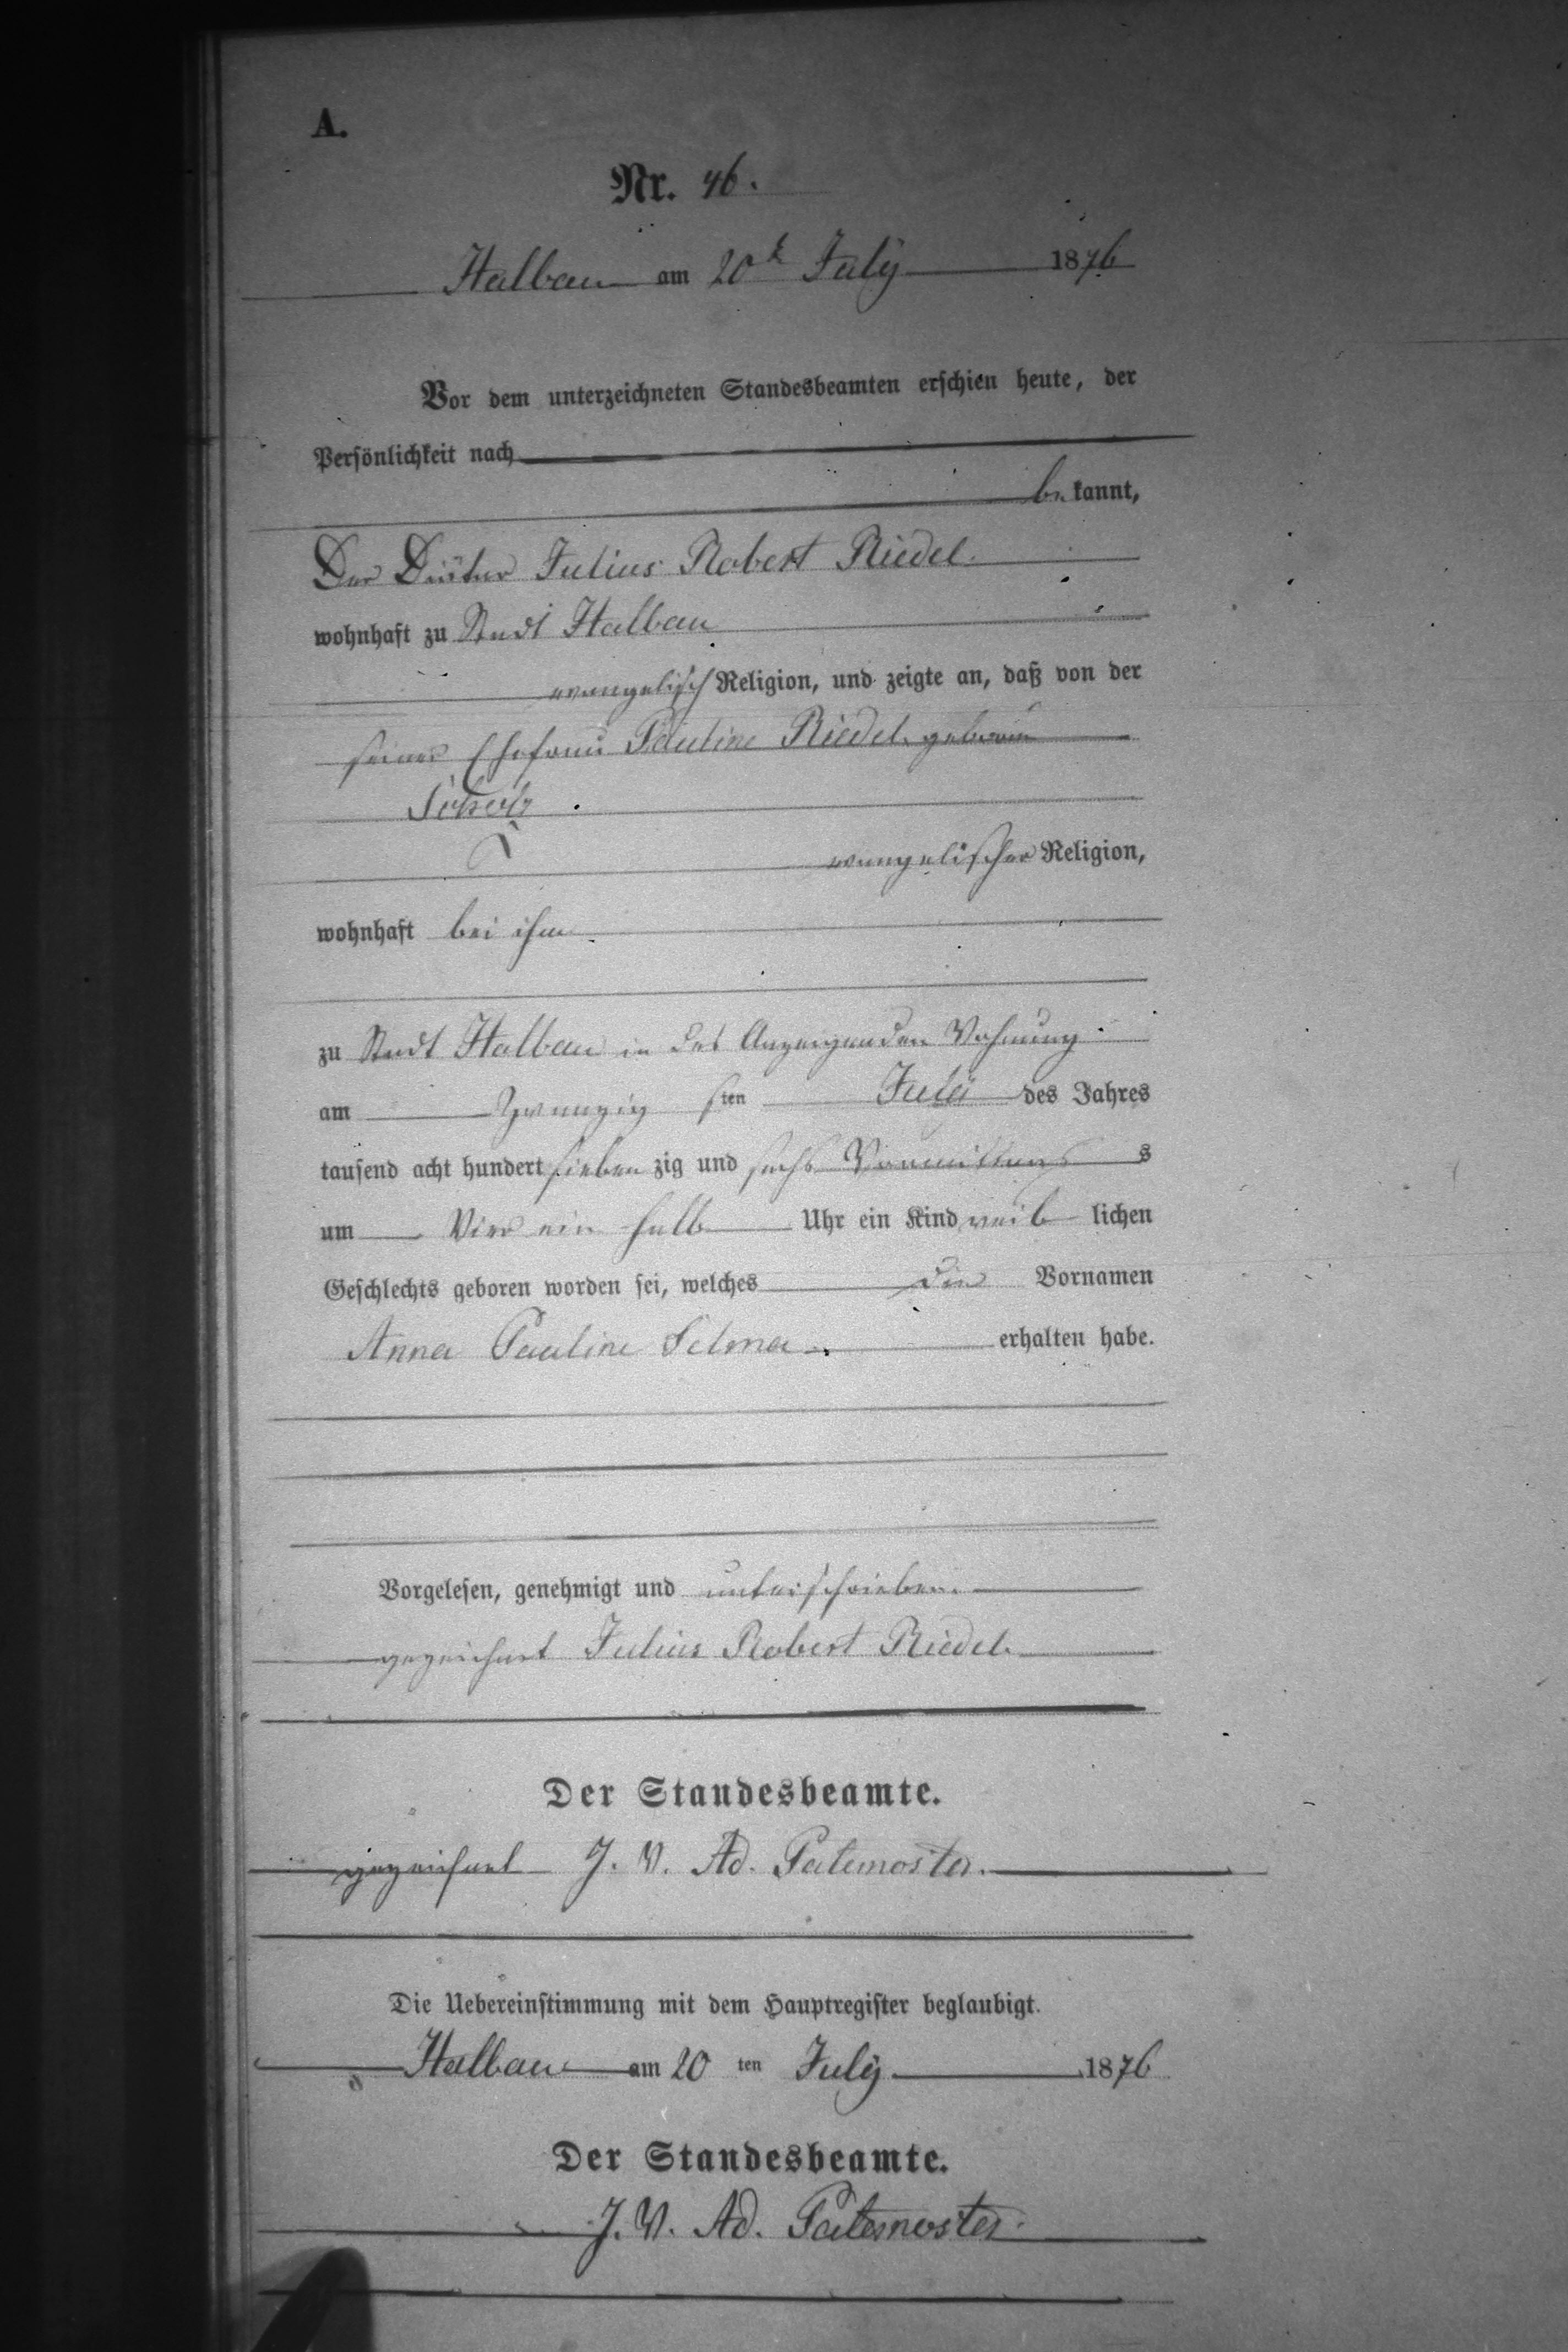 A.
Nr. 46.
Halbau am 20t July 1876
Vor dem unterzeichneten Standesbeamten erschien heute, der
Persönlichkeit nach
be kannt,
Der Julius Robert Riedel.
wohnhaft zu Stadt Halbau
evangelisch Religion, und zeigte an, daß von der
seiner Ehefrau Pauline Riedel. geborne
Scholz.
evangelischer Religion,
wohnhaft bei ihm
zu Stadt Halbau in des Anzeigenden Wohnung
am Zwanzig sten July des Jahres
tausend acht hundert sieben zig und sechs Vormittags s
um Vier ein halb Uhr ein Kind weib lichen
Geschlechts geboren worden sei, welches die Vornamen
Anna Pauline Selma. erhalten habe.
Vorgelesen, genehmigt und unterschrieben.
gezeichnet Julius Robert Riedel.
Der Standesbeamte.
gezeichnet J. V. Ad. Paternoster.
Die Uebereinstimmung mit dem Hauptregister beglaubigt.
Halbau am 20 ten July 1876
Der Standesbeamte.
J. V. Ad. Paternoster.